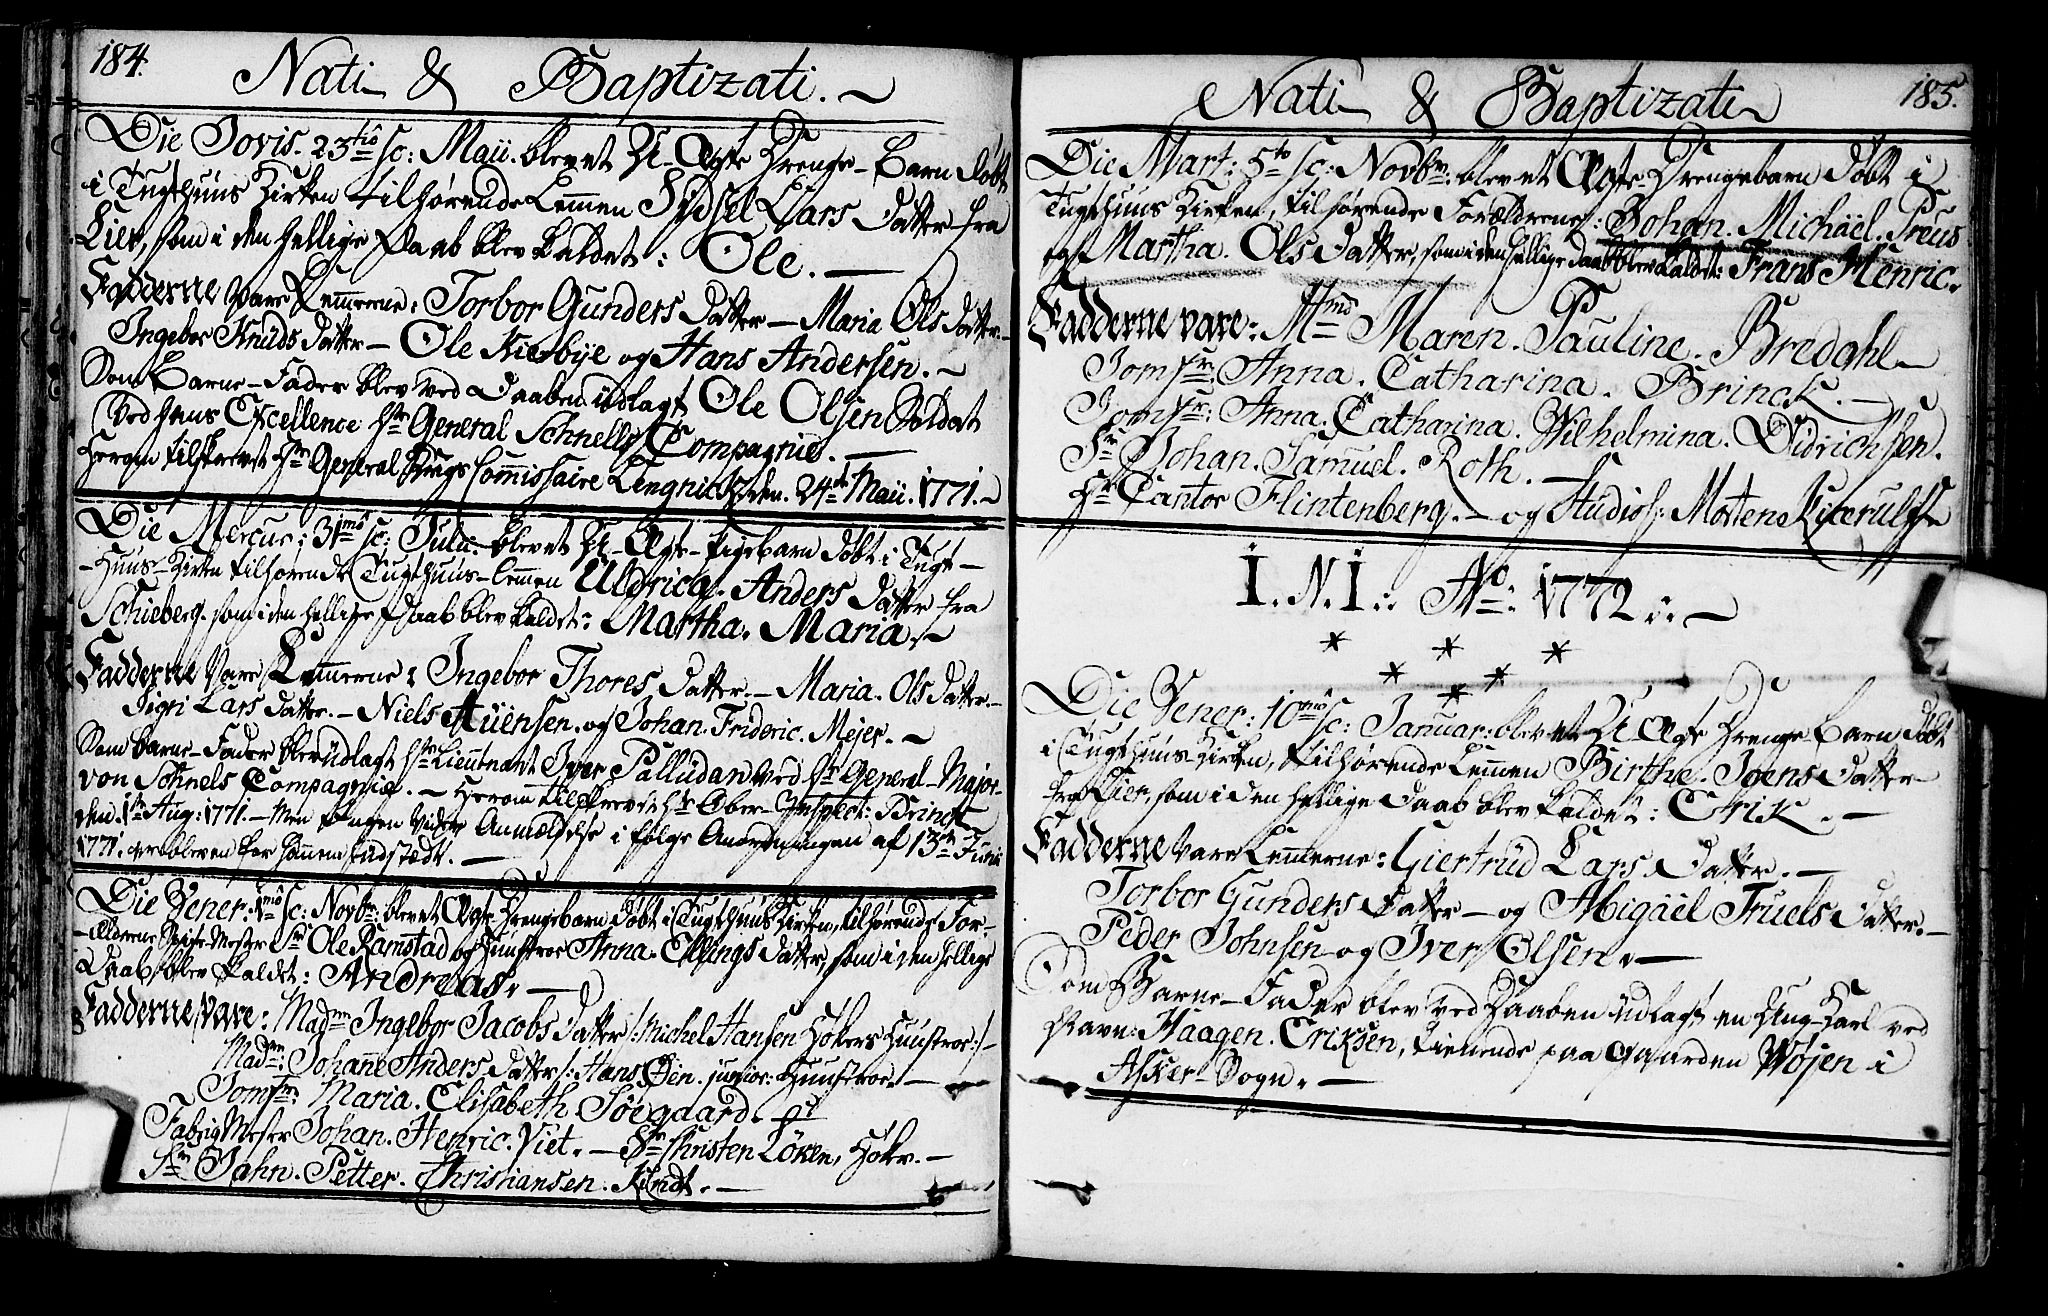 184.
Nati & Baptizati.
Die Jovis. 23tiô sc: Maii. blev et U-Ægte Drenge-Barn døbt
i Tugthuus Kirken tilhørende Lemmen Sidsel Lars Datter fra
Lier, som i den hellige Daab blev kaldet: Ole.
Fadderne vare Lemmerne: Torbor Gunders Datter - Maria Ols Datter -
Ingebor Knüds Datter - Ole Kierbye og Hans Andersen.
Som Barne-Fader blev ved Daaben udlagt Ole Olsen Soldat
ved hans Excellence Hr General Schnells Compagnie.
Herom tilskrevet Hr General Krigs Commissaire Lengnick den. 24de Maii. 1771.
Die Mercur: 31mô sc: Julii. blev et U-Ægte-Pigebarn døbt i Tugt-
-Huus-Kirken tilhørende Tugthuus-Lemmen Uldrica. Anders Datter fra
Schieberg. som i den hellige Daab blev kaldet: Martha. Maria.
Fadderne vare Lemmerne: Ingebor Thores Datter. - Maria. Ols Datter. -
Sigri Lars Datter. - Niels Auensen. og Johan. Frideric. Mejer.
Som Barne-Fader blev üdlagt Hr Lieutnant Iver Pallüdan ved Hr General-Major-
von Schnels Compagnie. - Herom tilskrevet Hr Ober-Inspect: Brinck
den. 1te Aug: 1771. - Men Ingen videre Anmeldelse i følge Anordningen af 13de Junii
1771. er bleven for hannem tilstædt.
Die Vener: 1mô sc: Novbr: blev et Ægte Drengebarn døbt i Tugthuus Kirken, tilhørende For-
-ældrene Spise-Mester Sr Ole Ramstad og Huustroe Anna. Ellings Datter, som i den hellige
Daab blev kaldet: Andreas.
Fadderne vare: Madm Ingebor Jacobs Datter /: Michel Hansen Høkers Huustroe:/-
Madm: Johanne Anders Datter /: Hans Øen. junior: Huustroe.
Jomfr: Maria. Elisabeth Söegaard.
Fabriq Mester Johan. Henric. Viet. - Sr Christen Löken, Høkr. -
Sr Jahn. Petter. Christiansen.
185.
Nati & Baptizati
Die Mart: 5to sc: Novbr: blev et Ægte-Drengebarn døbt i
Tugthuus Kirken, tilhørende Forældrene: Johan. Michäel. Preus
og Martha. Ols Datter, som i den hellige Daab blev kaldet: Frans Henric.
Fadderne vare: Md Maren. Pauline. Bredahl
Jomfr: Anna. Catharina. Brinck.
Jomfr: Anna. Catharina. Wilhelmina. Didrichsen.
Sr Johan. Samuel. Roth.
Hr Cantor Flintenberg. - og Studios: Morten Kierulf
I. N. I.: Ao: 1772.
* * * * * *
Die Vener: 10mô sc: Januar: blev et U-Ægte Drenge-Barn døbt
i Tugthuus Kirken, tilhørende Lemmen Birthe. Joens Datter
fra Lier, som i den hellige Daab blev kaldet: Erik.
Fadderne vare Lemmerne: Giertrüd Lars Datter.
Torbor Gunders Datter - og Abigäel Truels Datter. -
Peder Johnsen og Iver Olsen.
Som Barne-Fader blev ved Daaben üdlagt en Ung-Karl ved
Navn: Haagen. Eriksen, tienende paa Gaarden Wøjen i
Asker-Sogn.